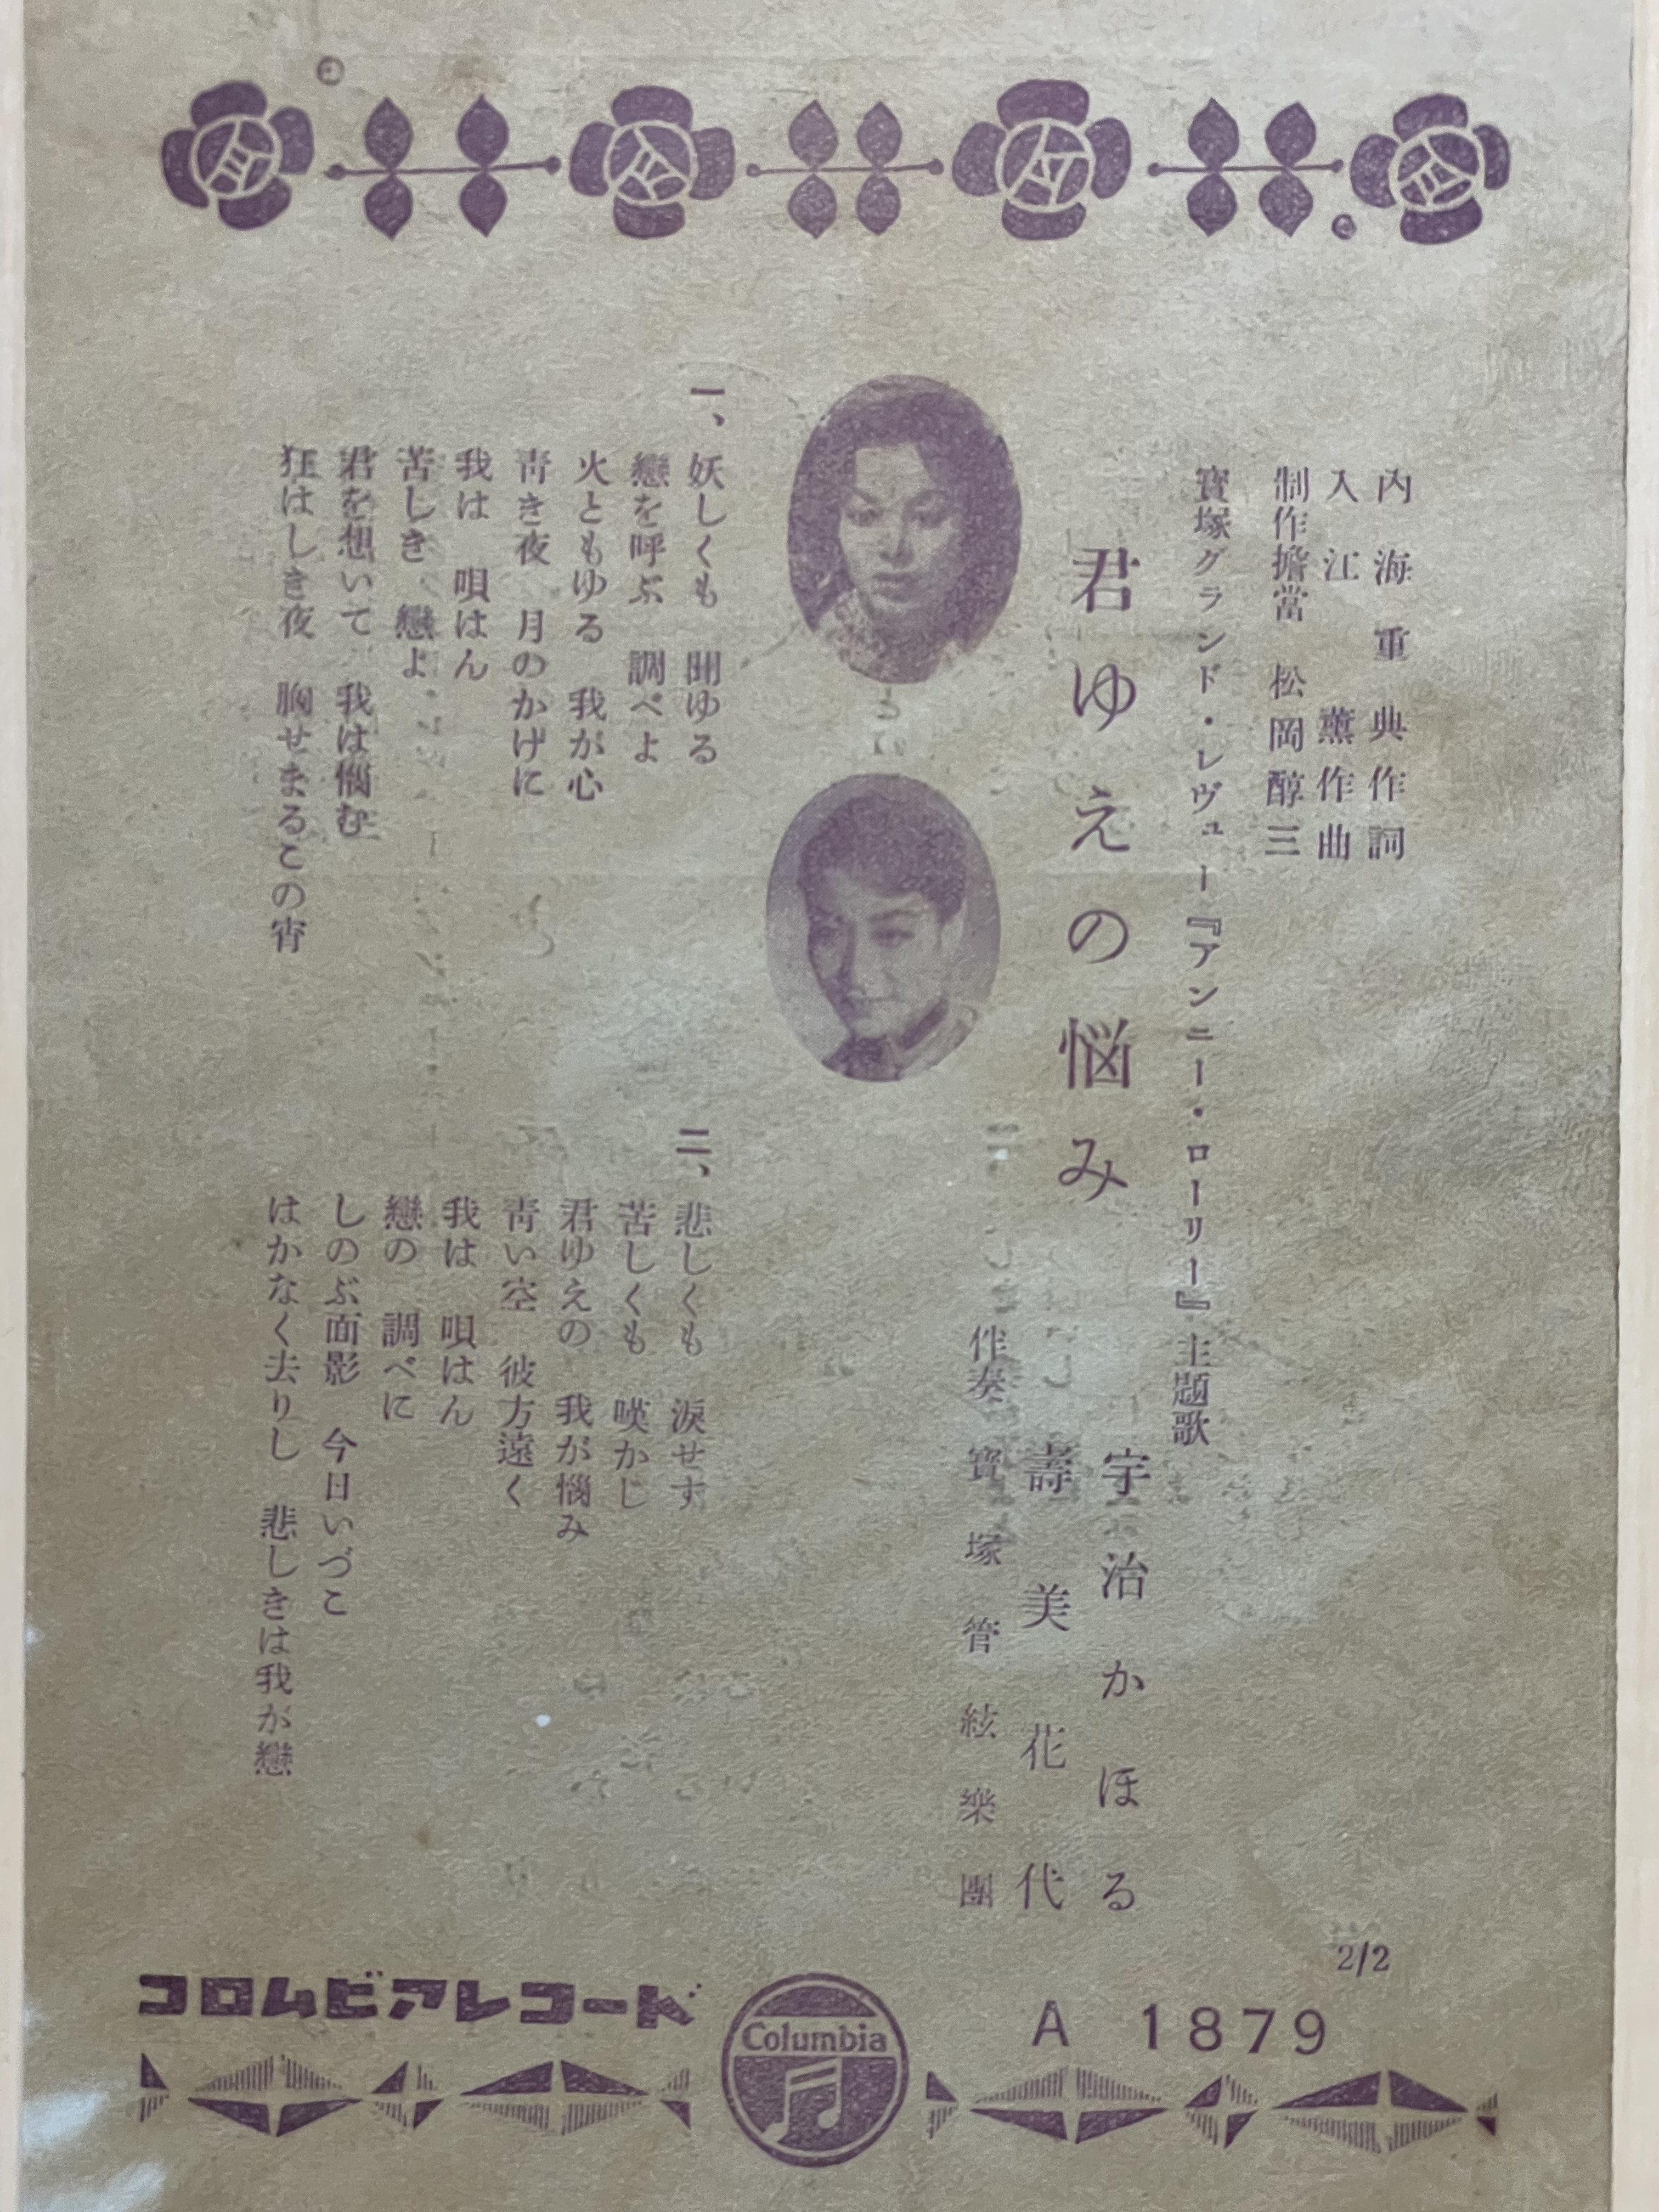 内海重典作詞
入江薫作曲
制作擔當 松岡醇三
寳塚グランド・レヴュー『アンニー・ローリー』主題歌
君ゆえの悩み
宇治かほる
壽美花代
伴奏 寳塚管絃樂團
一、妖しくも 聞ゆる
戀を呼ぶ 調べよ
火ともゆる 我が心
靑き夜 月のかげに
我は 唄はん
苦しき 戀よ
君を想いて 我は惱む
狂はしき夜 胸せまるこの宵
二、悲しくも 淚せず
苦しくも 嘆かじ
君ゆえの 我が惱み
靑い空 彼方遠く
我は 唄はん
戀の 調べに
しのぶ面影 今日いづこ
はかなく去りし 悲しきは我が戀
2/2
コロムビアレコード
Columbia
A 1879